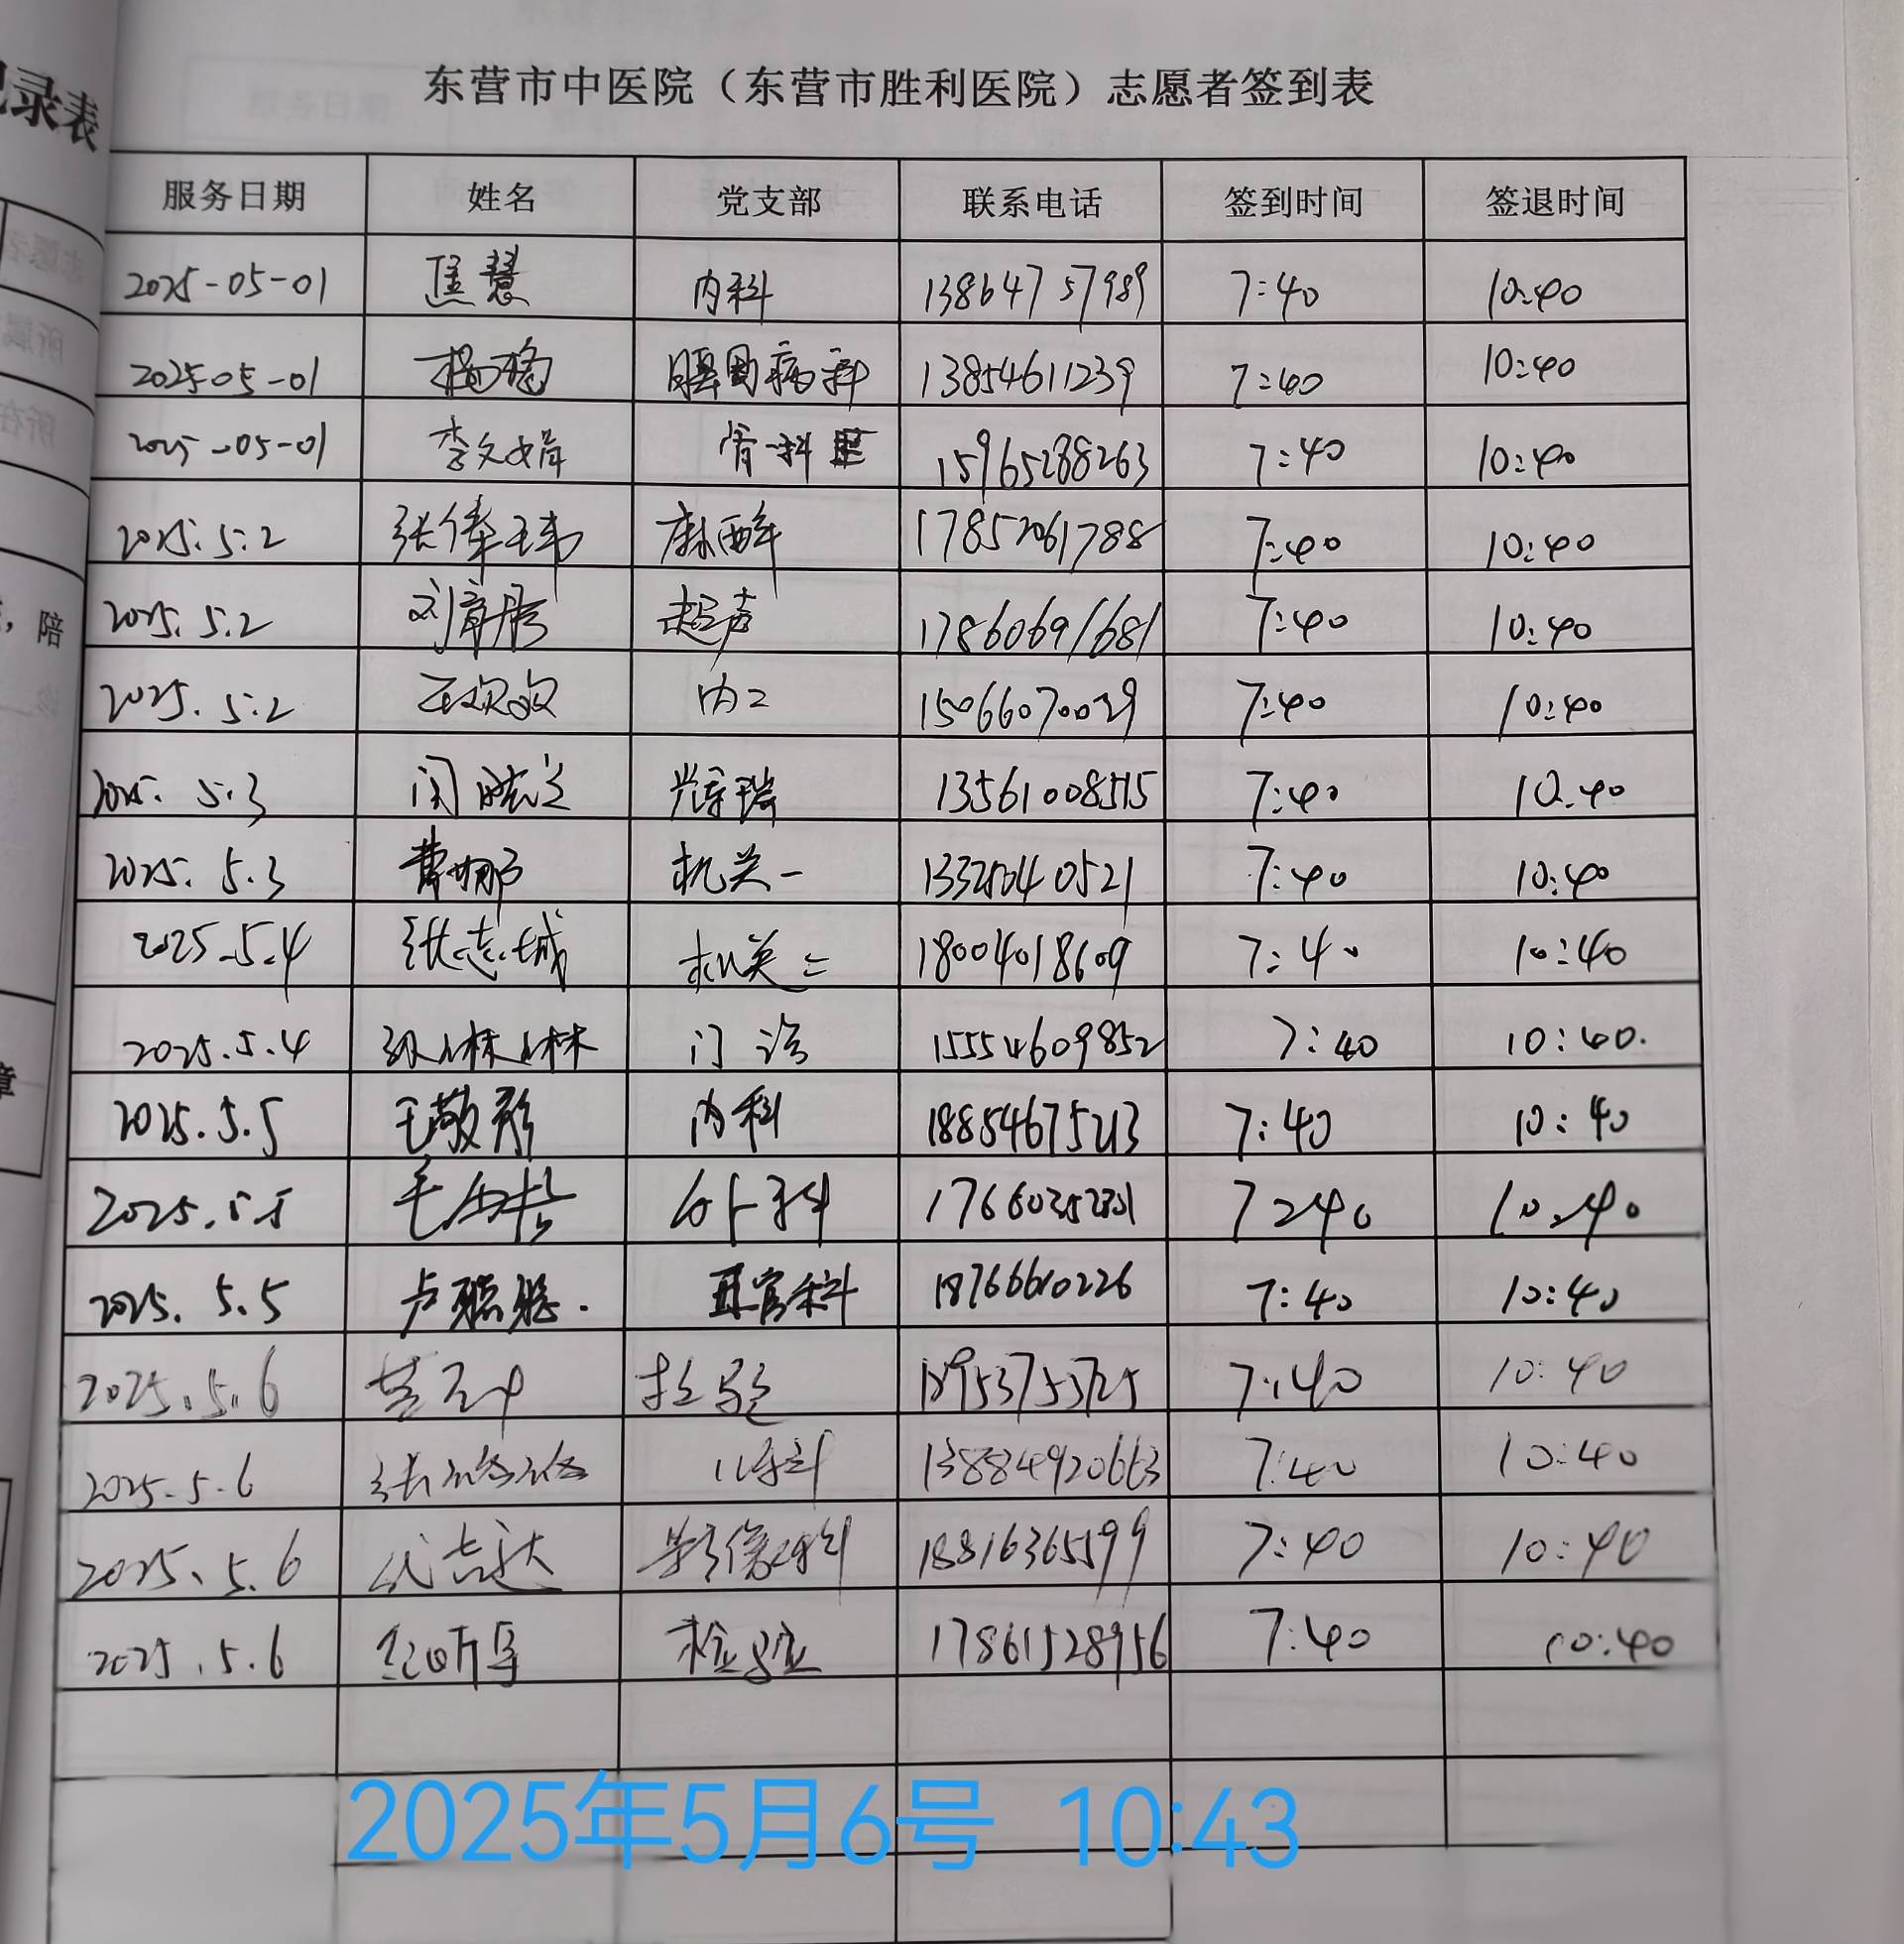 记录表
东营市中医院（东营市胜利医院）志愿者签到表
服务日期 姓名 党支部 联系电话 签到时间 签退时间
2025-05-01 匡慧 内科 13864757989 7:40 10:40
2025-05-01 杨 病科 13854611239 7:40 10:40
2025-05-01 李文娟 骨科 15965288263 7:40 10:40
2025.5.2 张 麻醉 17852061788 7:40 10:40
2025.5.2 刘彦彤 超声 17860691681 7:40 10:40
2025.5.2 王姣姣 内二 15066070029 7:40 10:40
2025.5.3 闫 13561008515 7:40 10:40
2025.5.3 曹娜 机关一 7:40 10:40
2025.5.4 张志城 机关二 18004018609 7:40 10:40
2025.5.4 孙琳琳 门诊 15554609852 7:40 10:40
2025.5.5 王敬彩 内科 18854675213 7:40 10:40
2025.5.5 毛 外科 7:40 10:40
2025.5.5 卢聪聪 耳官科 18766610226 7:40 10:40
2025.5.6 检验 7:40 10:40
2025.5.6 张 儿科 13884920663 7:40 10:40
2025.5.6 代志达 影像科 18816365199 7:40 10:40
2025.5.6 检验 17861528956 7:40 10:40
陪
章
2025年5月6号 10:43